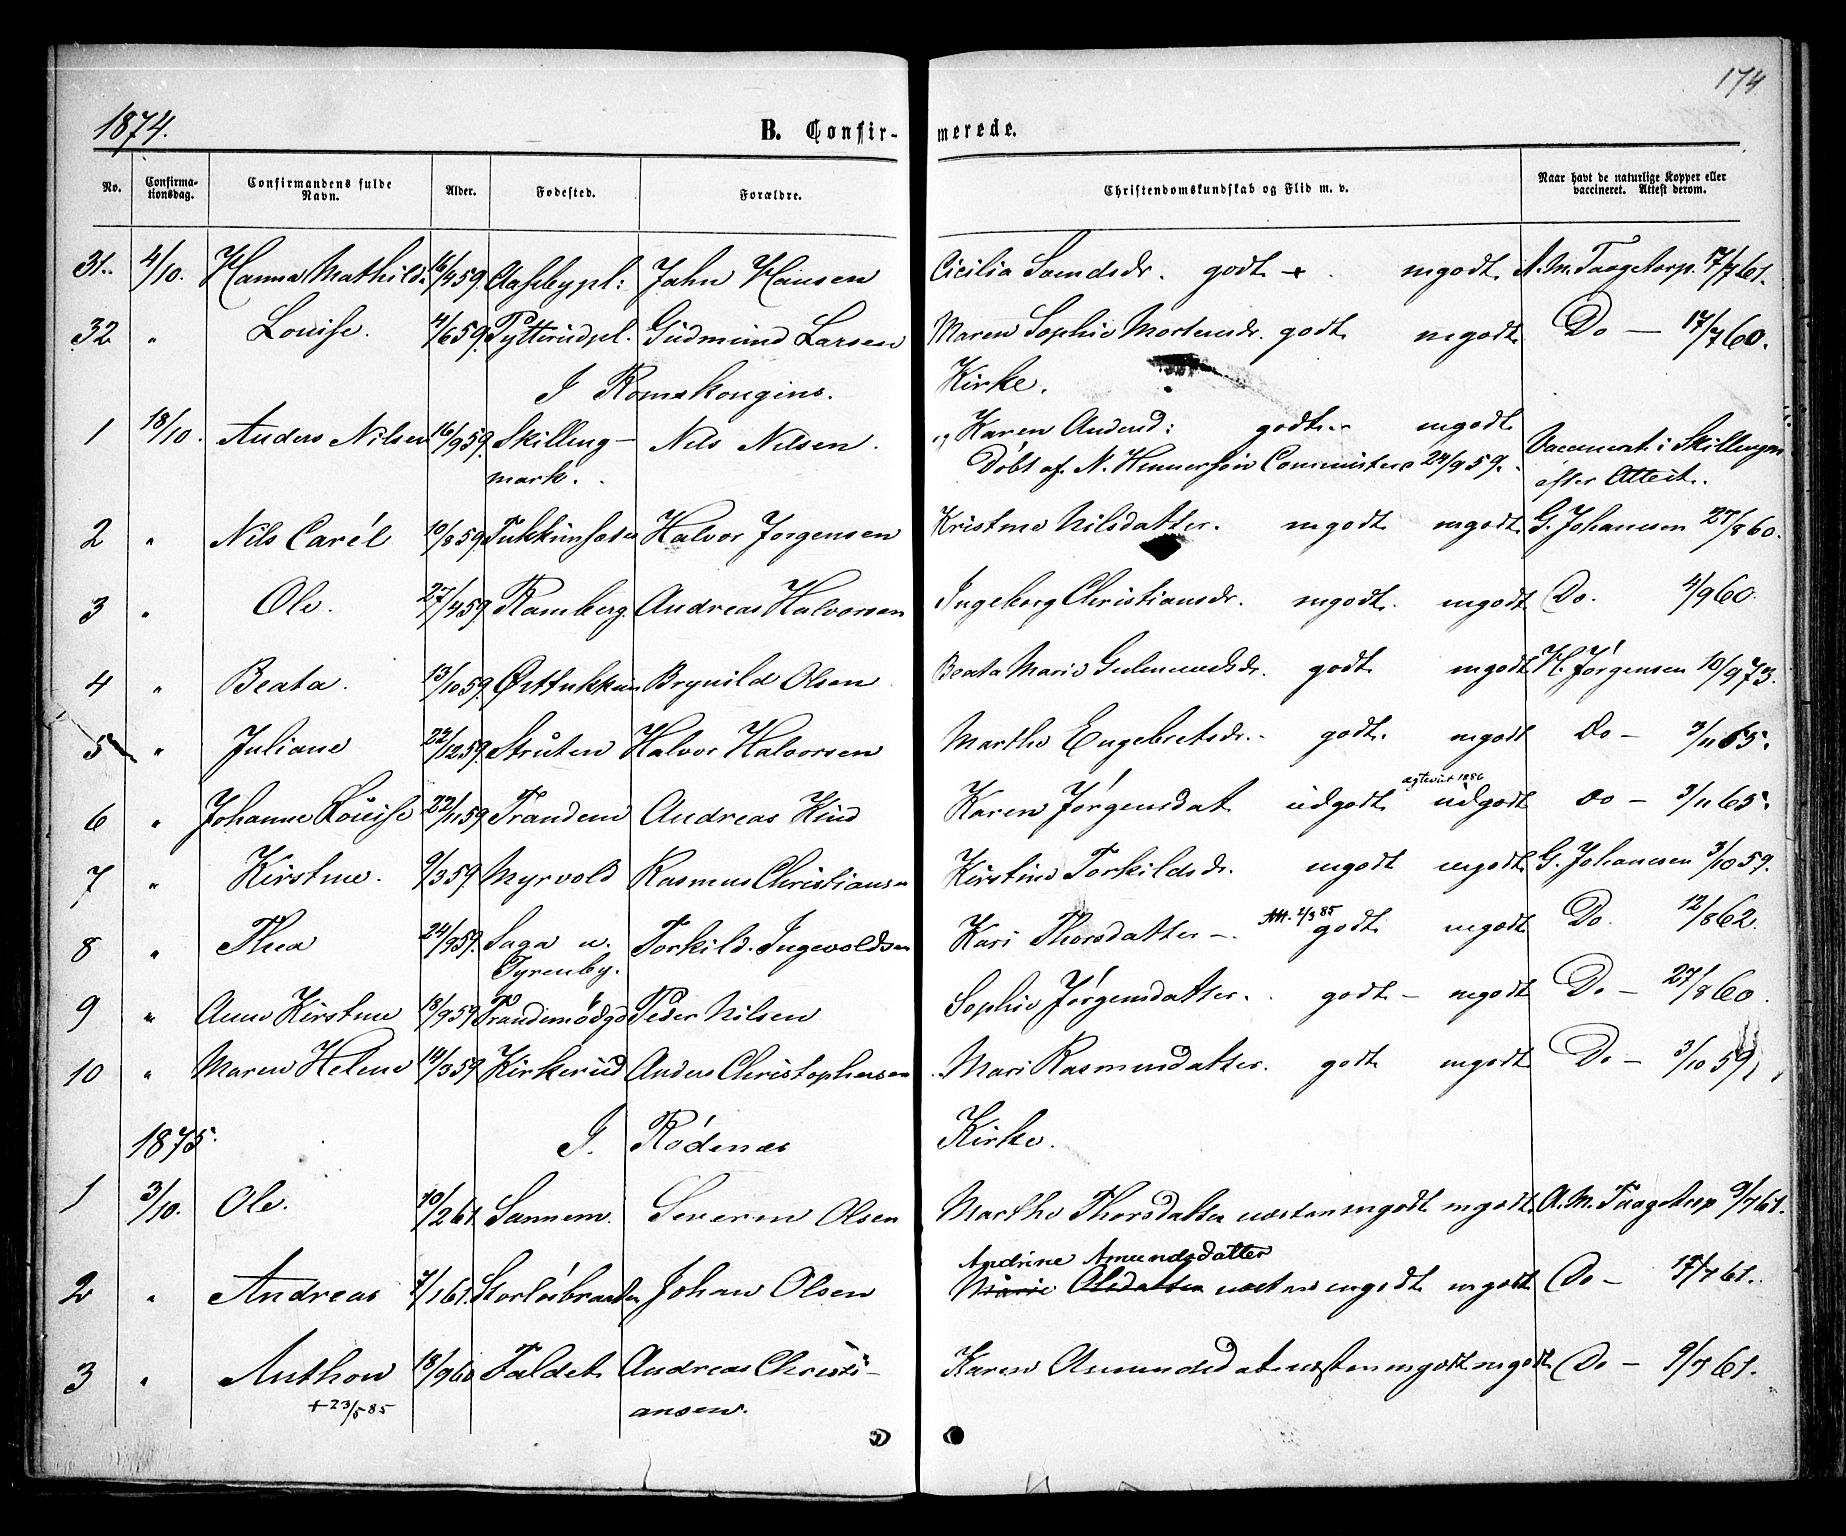 174
1874. B. Confir- merede.
No. Confirma-tionsdag. Confirmandens fulde Navn. Alder. Fødested. Forældre. Christendomskundskab og Flid m. v. Naar havt de naturlige Kopper eller vaccineret. Attest derom.
31. 4/10. Hanna Mathilde 16/4 59 Aasebypl: Jahn Hansen Cicilia Svendsdr. godt mgodt A. M. Taagetorp. 17/7 61.
32 " Louise. 11/6 59. Tytterudpl. Gudmund Larsen Maren Sophie Mortensdr. godt mgodt Do — 17/7 60.
I Romskougins. Kirke.
1 18/10. Anders Nilsen 16/9 59. Skilling- Nils Nilsen. Karen Andersd: godt mgodt Vaccinerat i Skillingm
mark. Døbt af. N. 24/9 59. efter Attest.
2 " Nils Carél 10/8 59 Halvor Jørgensen Kristine Nilsdatter. mgodt mgodt G. Johannesen 27/8 60.
3 " Ole. 27/4 59 Ramberg. Andreas Halvorsen Ingeborg Christiansdr. mgodt. mgodt Do. 4/9 60.
4 " Beata. 13/10 59. Østtukkun Brynild Olsen Beata Marie godt mgodt H. Jørgensen 10/9 73.
5 " Juliane 22/12 59. Struten Halvor Halvorsen Marthe Engebretsdr. godt. mgodt Do — 3/11 65.
6 " Johanne Louise 22/11 59 Trandem Andreas Kind Karen Jørgensdat udgodt ægteviet 1886 udgodt Do — 3/11 65.
7 " Kirstine. 9/3 59 Myrvold Rasmus Christiansen Kirstine Torkildsdr. mgodt mgodt G. Johannesen 3/10 59.
8 " Thea 24/9 59. Saga u. Torkild. Ingevoldsen Kari Thorsdatter — Att. 2/3 85 godt mgodt Do. 12/8 62.
Tyrenby.
9 " Anne Kirstine 18/9 59 Trandemødgd Peder Nilsen Sophie Jørgensdatter. godt — mgodt Do — 27/8 60.
10 " Maren Helene 14/3 59 Kirkerud Anders Christophersen Mari Rasmusdatter. godt mgodt Do — 3/10 59.
1875. I. Rødenæs Kirke.
1 3/10. Ole. 10/2 61. Sannem. Severin Olsen Marthe Thorsdatter næsten mgodt mgodt A. M. Taagetorp 9/7 61.
Andrine Amundsdatter
2 " Andreas 7/1 61. Johan Olsen Marie Olsdatter næsten mgodt mgodt Do — 17/7 61.
3 " Anthon 18/9 60 Taldet Andreas Christi- Karen Amundsdat næsten mgodt mgodt Do — 9/7 61.
+ 23/5 85 ansen.